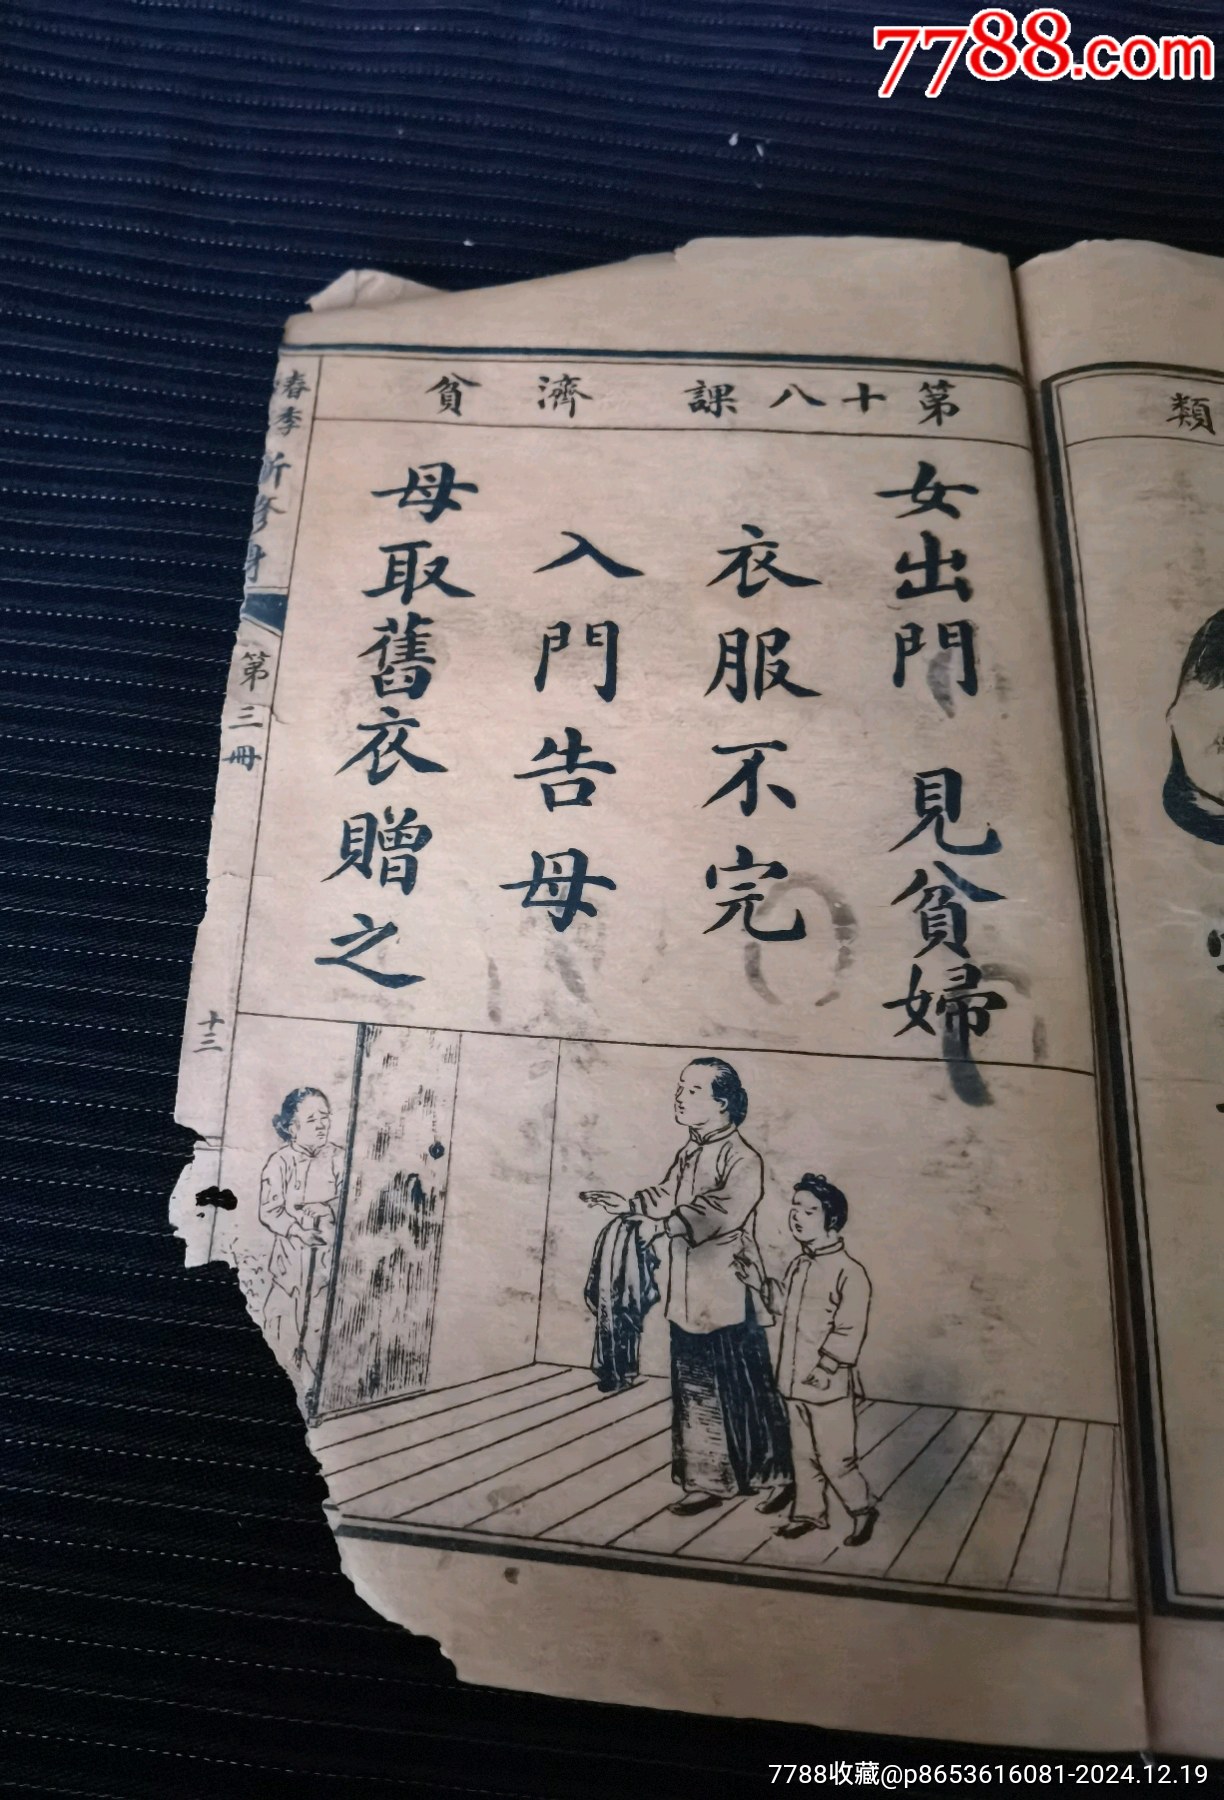 7788.com
第十八課 濟貧
女出門 見貧婦
衣服不完
入門告母
母取舊衣贈之
春季 新修身
第三冊
十三
類
7788收藏@p8653616081-2024.12.19